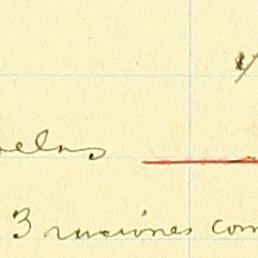 elas
3 raciones com